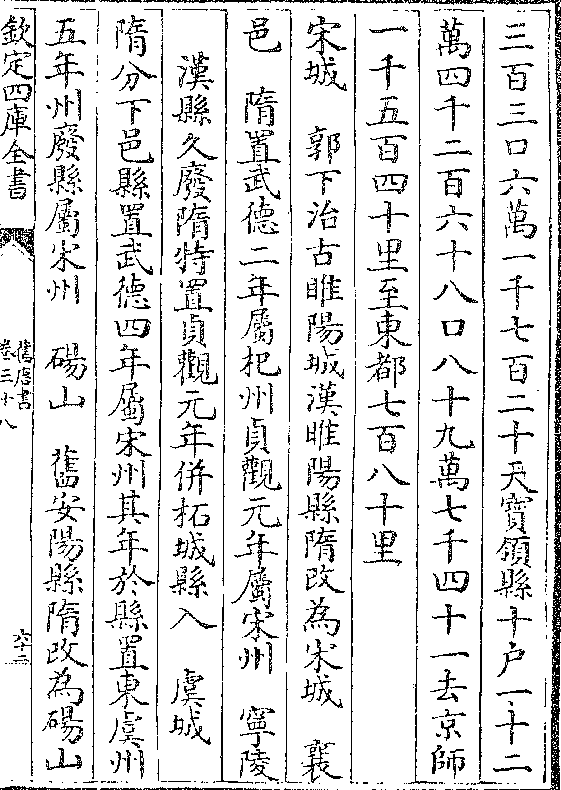 三百三口六萬一千七百二十天寶領縣十户一十二
萬四千二百六十八口八十九萬七千四十一去京師
一千五百四十里至東都七百八十里
宋城　郭下治古睢陽城漢睢陽縣隋改為宋城　襄
邑　隋置武德二年屬杞州貞觀元年屬宋州　寧陵
漢縣久廢隋特置貞觀元年併柘城縣入　虞城
隋分下邑縣置武德四年屬宋州其年於縣置東虞州
五年州廢縣屬宋州　碭山　舊安陽縣隋改為碭山
欽定四庫全書
舊唐書
卷三十八
六十二